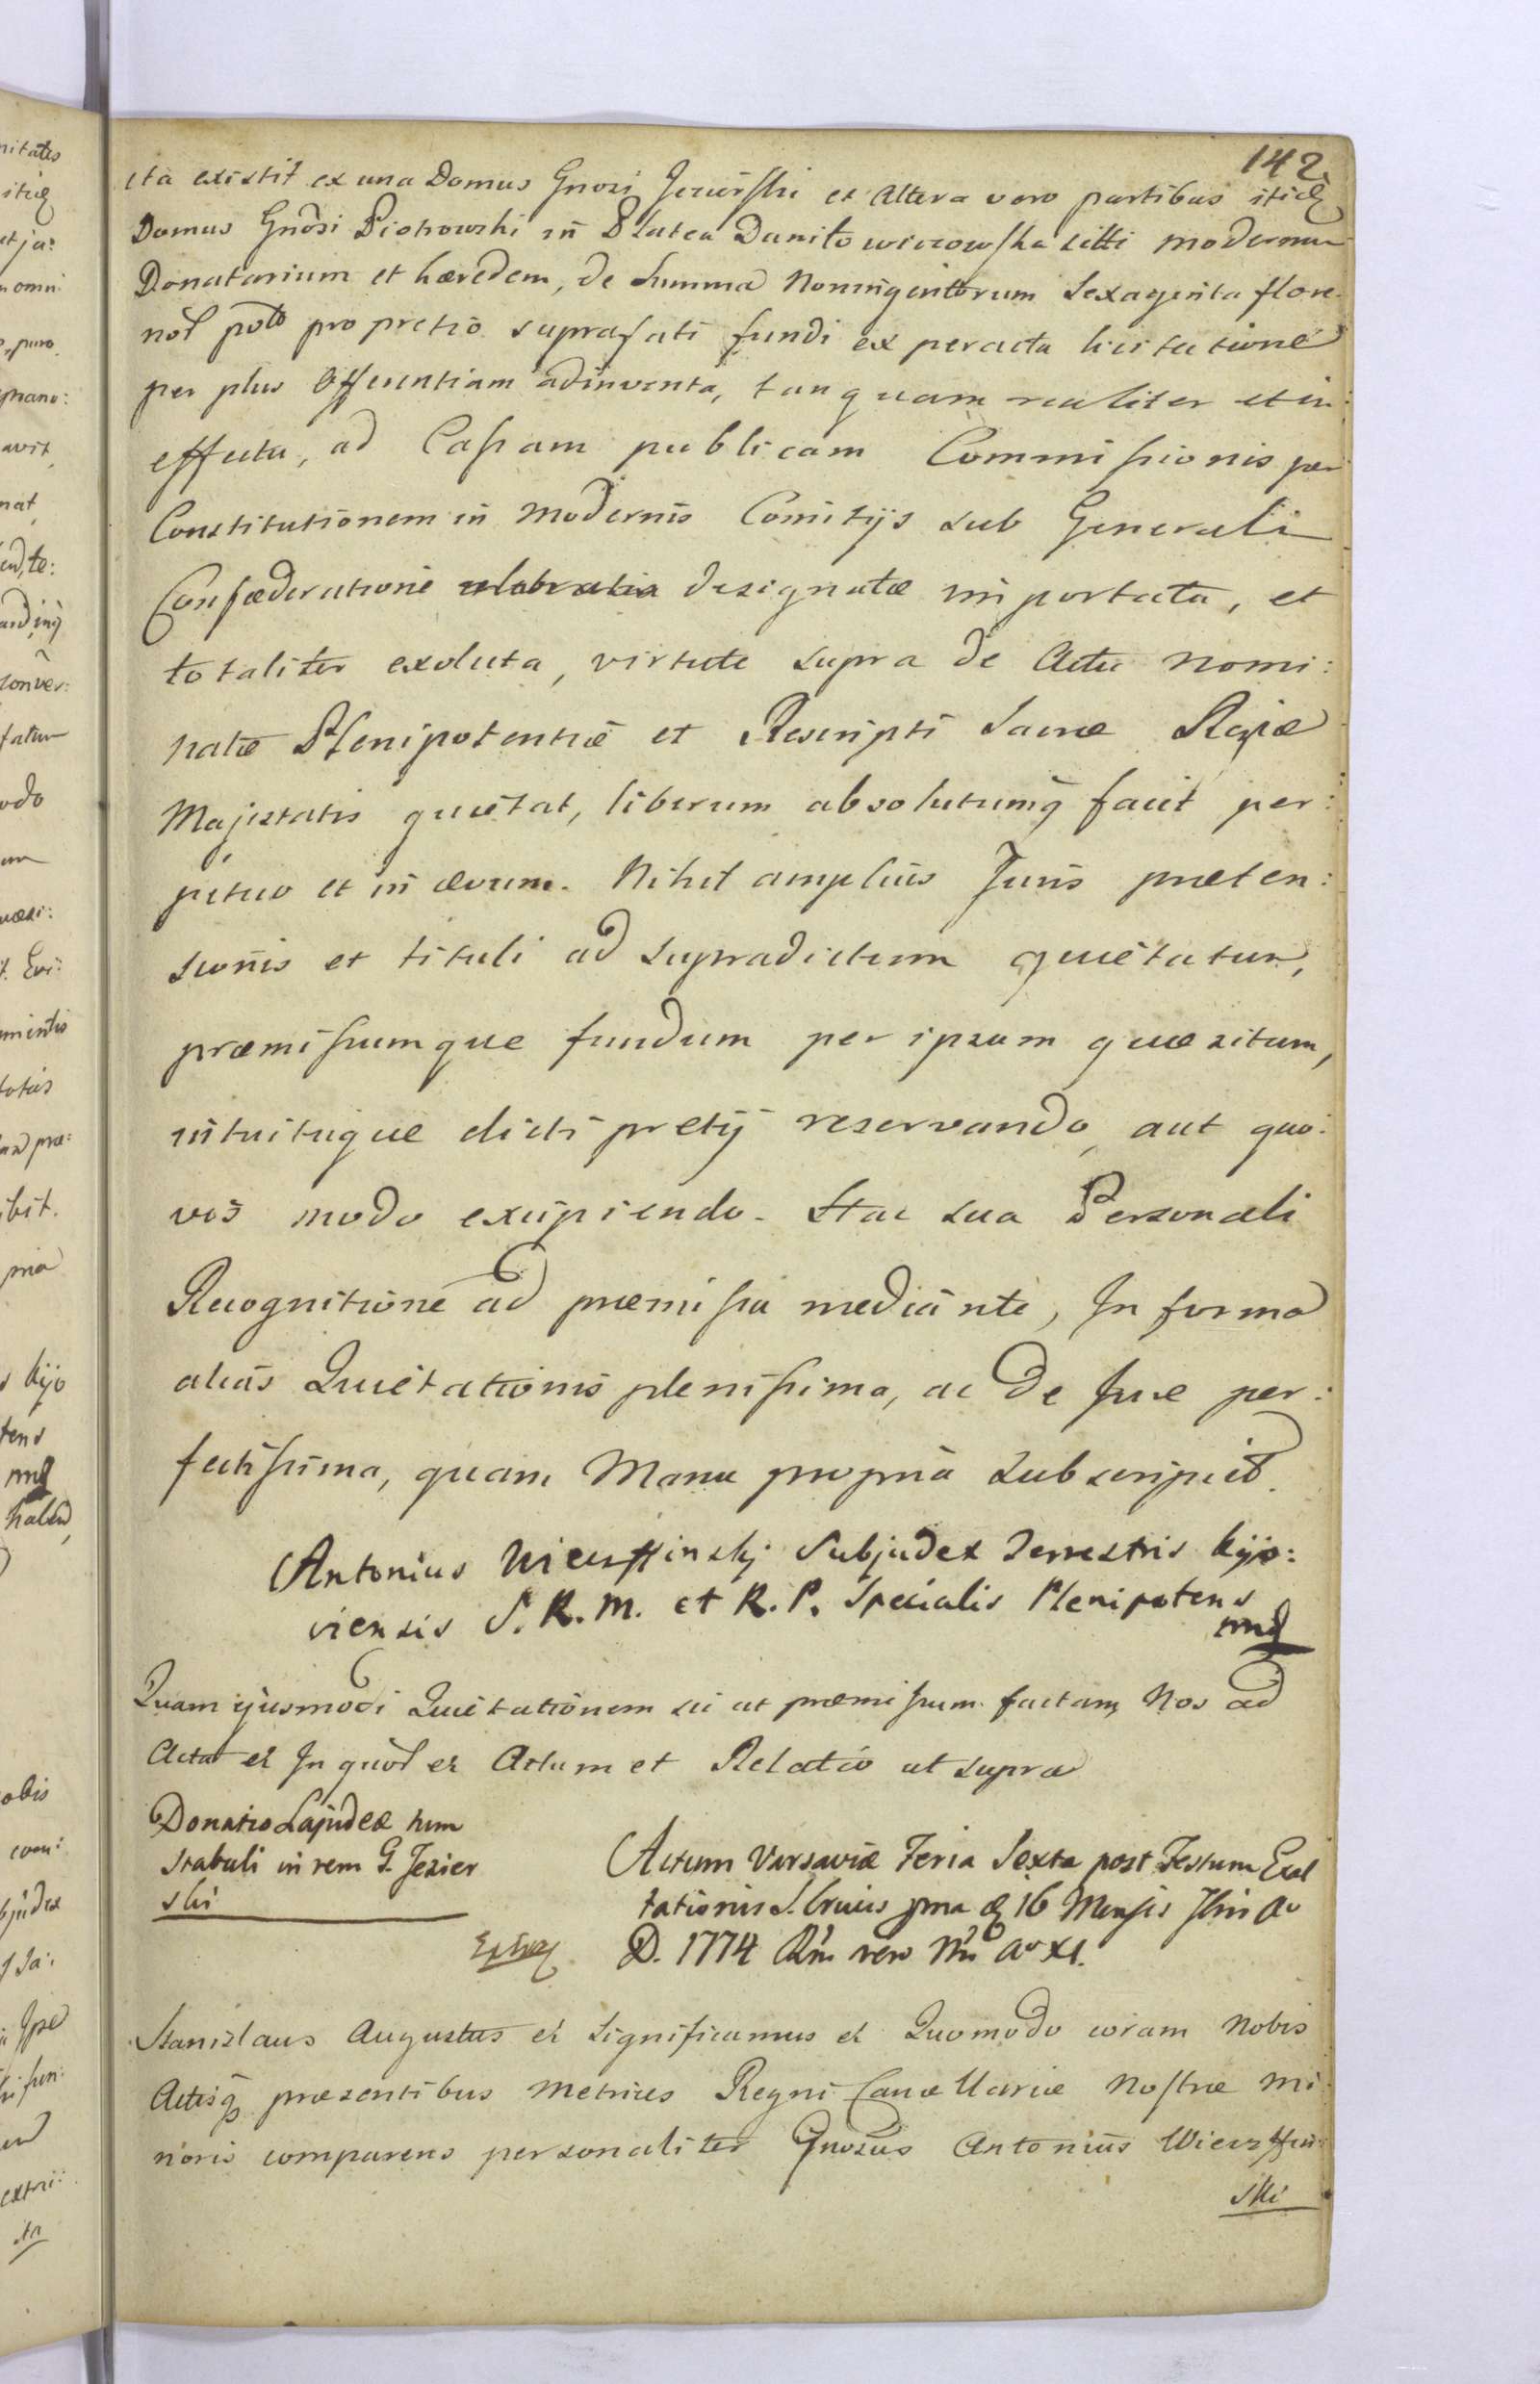 142
ita existit ex una Domus Gnosi Jezierski et Altera vero partibus itidẽ
Domus Gnosi Piotrowski in Platea Daniłowiczowska sitti modernum
Donatarium et hæredem, de Summa Nonningentorum Sexaginta flore:
nol polo pro pretio suprafati fundi ex peracta licitatione
per plus Offerentiam adinventa, tanquam realiter et in:
effectu, ad Cassam publicam Commissionis per
Constitutionem in modernis Comitijs sub Generali
Confæderatione celebratis designatæ importata, et
totaliter exoluta, virtute supra de Actu nomi:
natæ Plenipotentiæ et Rescripti Sacræ Regiæ
Majestatis quietat, liberum absolutumq̃ facit per:
petuo et in ævum. Nihil amplius Juris præten:
sionis et tituli ad supradictum quietatum,
præmissumque fundum per ipsum quæsitum,
intuituque dicti pretij reservando, aut quo:
vis modo excipiendo. Hac sua Personali
Recognitione ad præmissa mediante, In forma
alias Quietationis plenissima, ac de Jure per:
fectissima, quam Manu propria subscripsit.
Antonius Wiersztinskj Subjudex Terrestris Kijo:
viensis S. R. M. et R. P. Specialis Plenipotens
mp
Quam ejusmodi Quietationem sic ut præmissum factam, Nos ad
Acta et In quor et Actum et Relatio ut supra
Donatio Lapideæ tum
Stabuli in rem G. Jezier
ski
Actum Varsaviæ Feria Sexta post Festum Exal
tationis S. Crucis pma æ 16 Mensis 7bris Ao
D. 1774 Rni vero Nri ao XI.
Stanislaus Augustus et Significamus et Quomodo coram Nobis
Actisq̃ præsentibus Metrices Regni Cancellariæ Nostræ Mi
noris comparens personaliter Gnosus Antonius Wiersztin:
ski